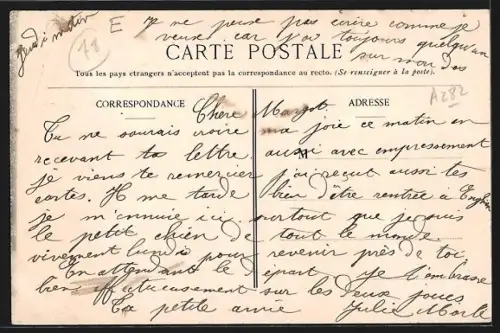 Jeudi matin
E
je ne peux pas écrire comme je
veux car j'ai toujours quelqu'un
sur mon dos
CARTE POSTALE
Tous les pays étrangers n'acceptent pas la correspondance au recto. (Se renseigner à la poste).
CORRESPONDANCE
ADRESSE
A282
Chère Margot
Tu ne saurais croire ma joie ce matin en
recevant ta lettre aussi avec empressement
je viens te remercier j'ai reçut aussi tes
cartes. Il me tarde bien d'être rentrée à
je m'ennuie ici surtout que je suis
le petit chien de tout le monde
vivement lundi pour revenir près de toi
En attendant le départ je t'embrasse
bien affectueusement sur les deux joues
Ta petite amie
Julia